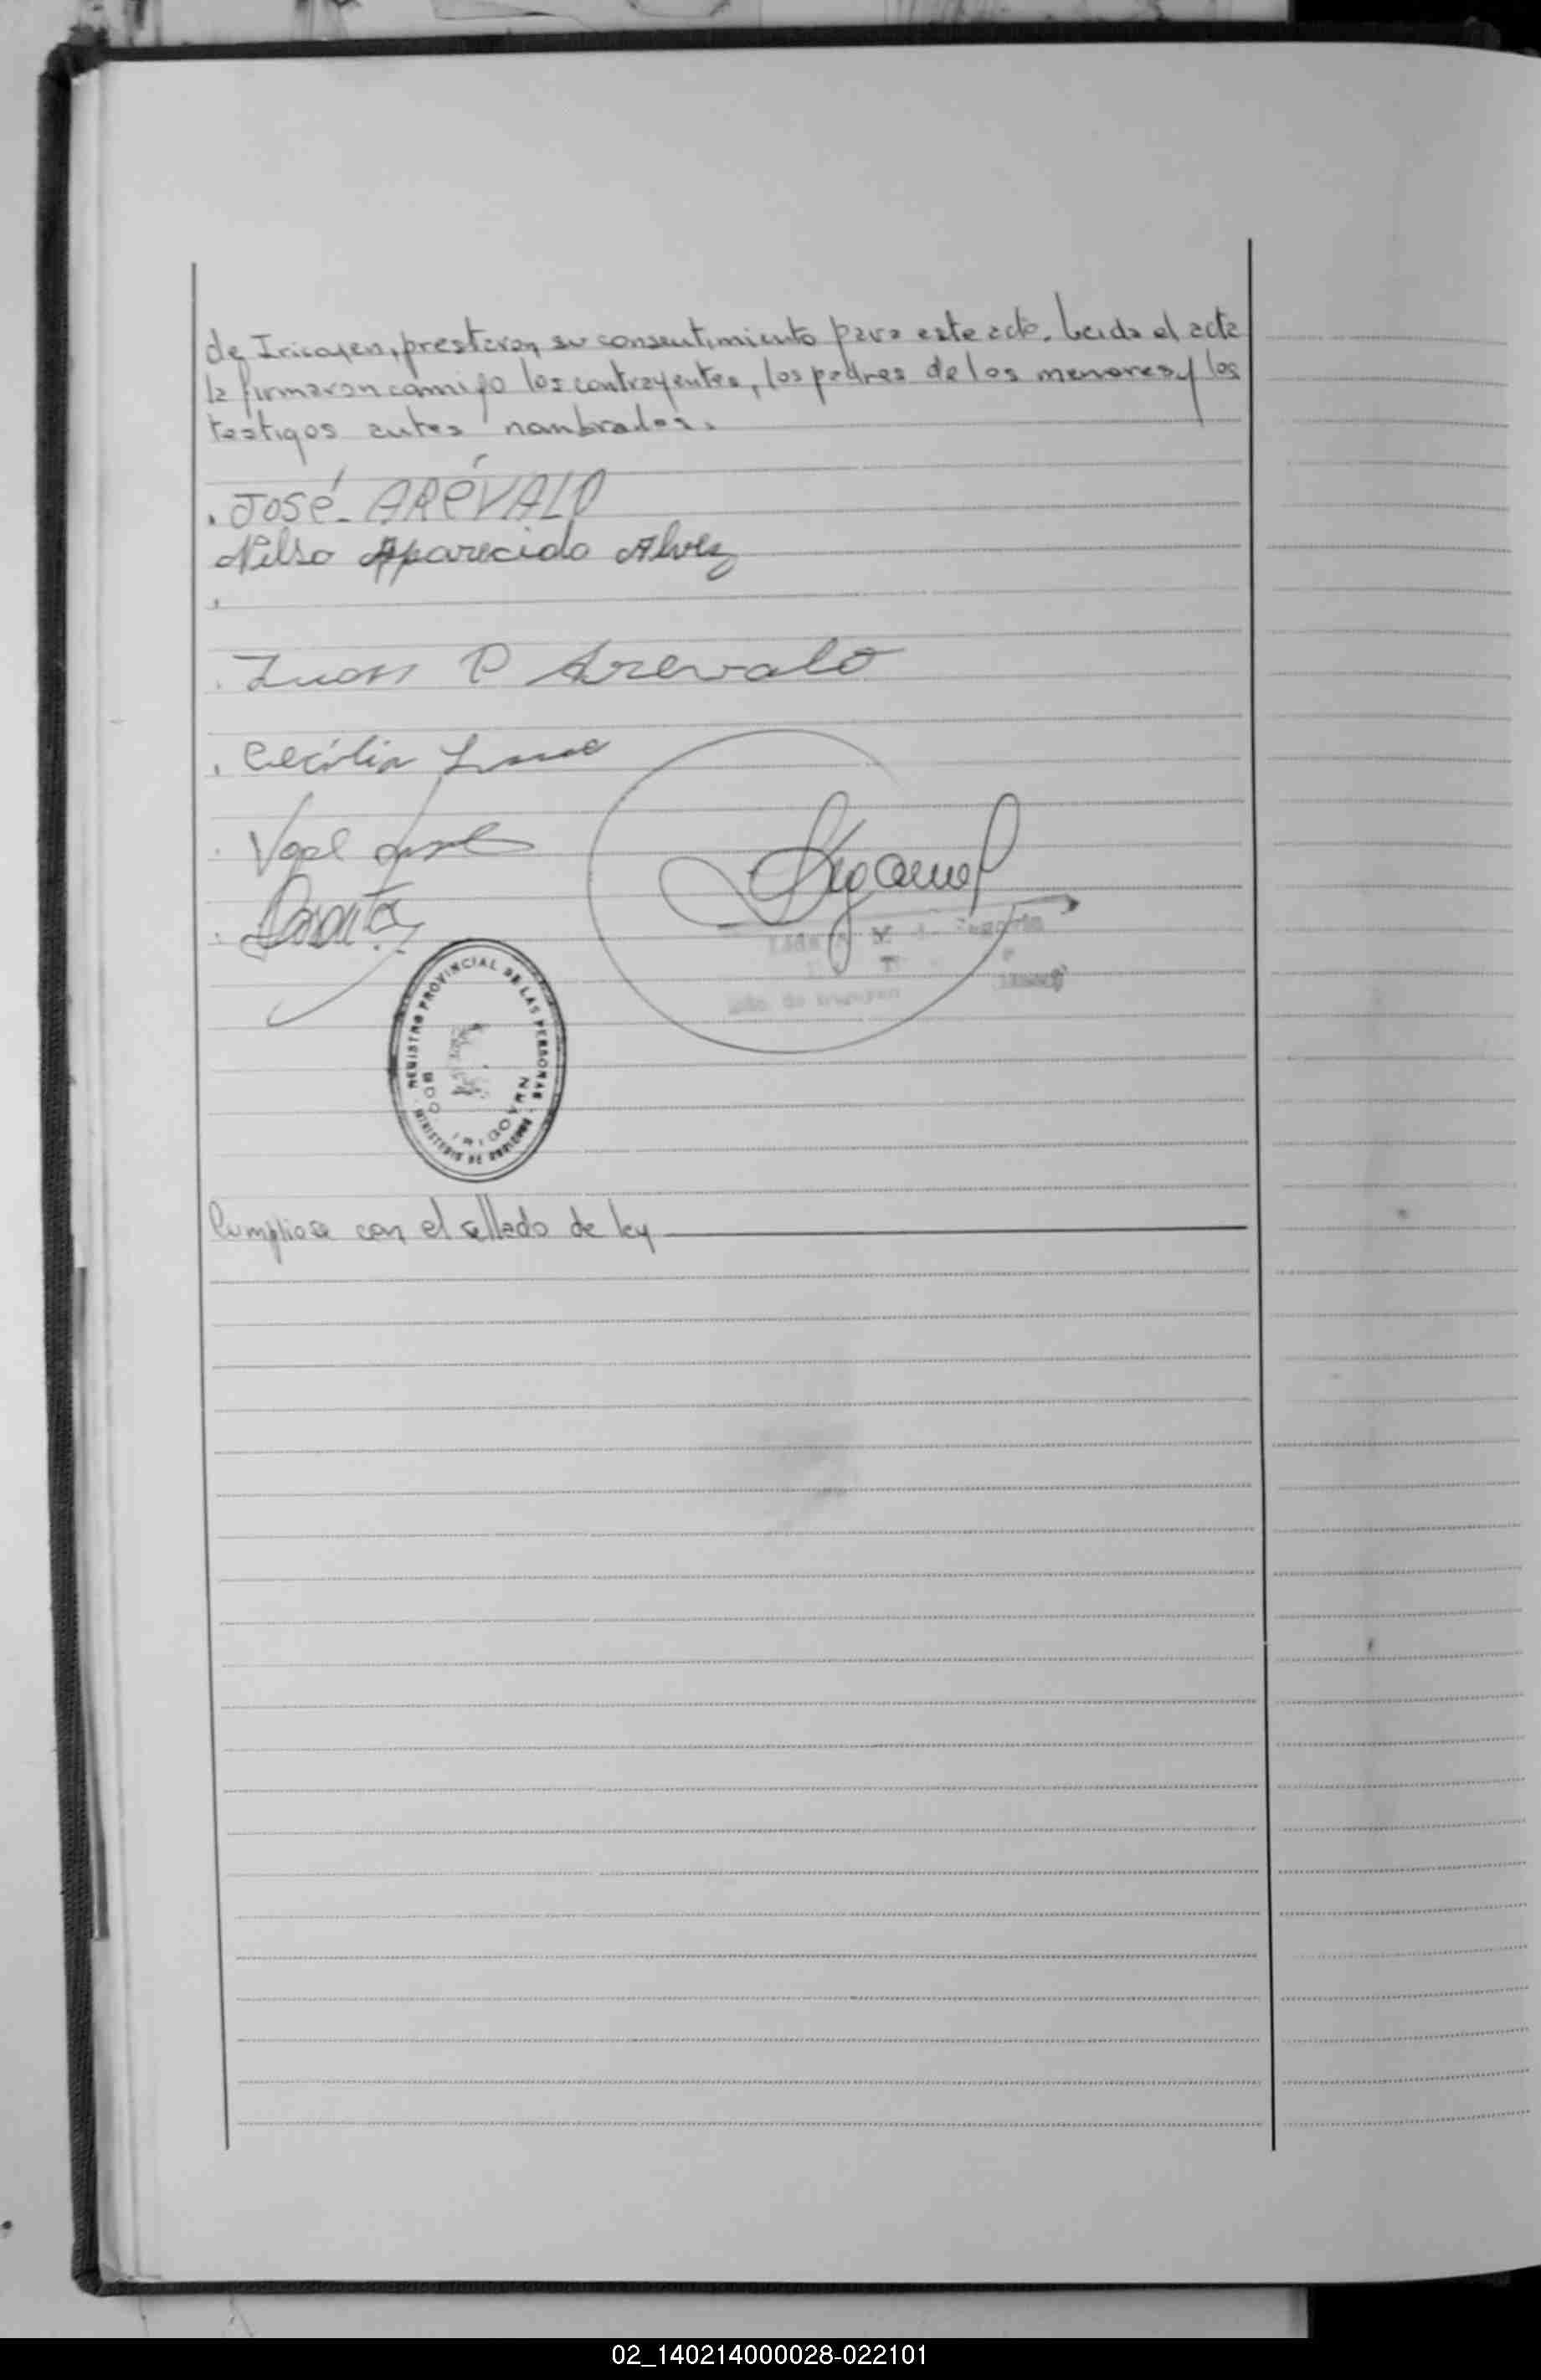 de Iricoyen, prestaron su consentimiento para este acto. Leida el acta
la firmaron comigo los contrayentes, los padres de los menores y los
testigos antes nombrados.
José Arévalo
Nilso Aparecido Alvez
Juan P Arevalo
Cecilia
REGISTRO PROVINCIAL DE LAS PERSONAS
MINISTERIO DE GOBIERNO
IRIGOYEN
Cumpliose con el sellado de ley
02_140214000028-022101